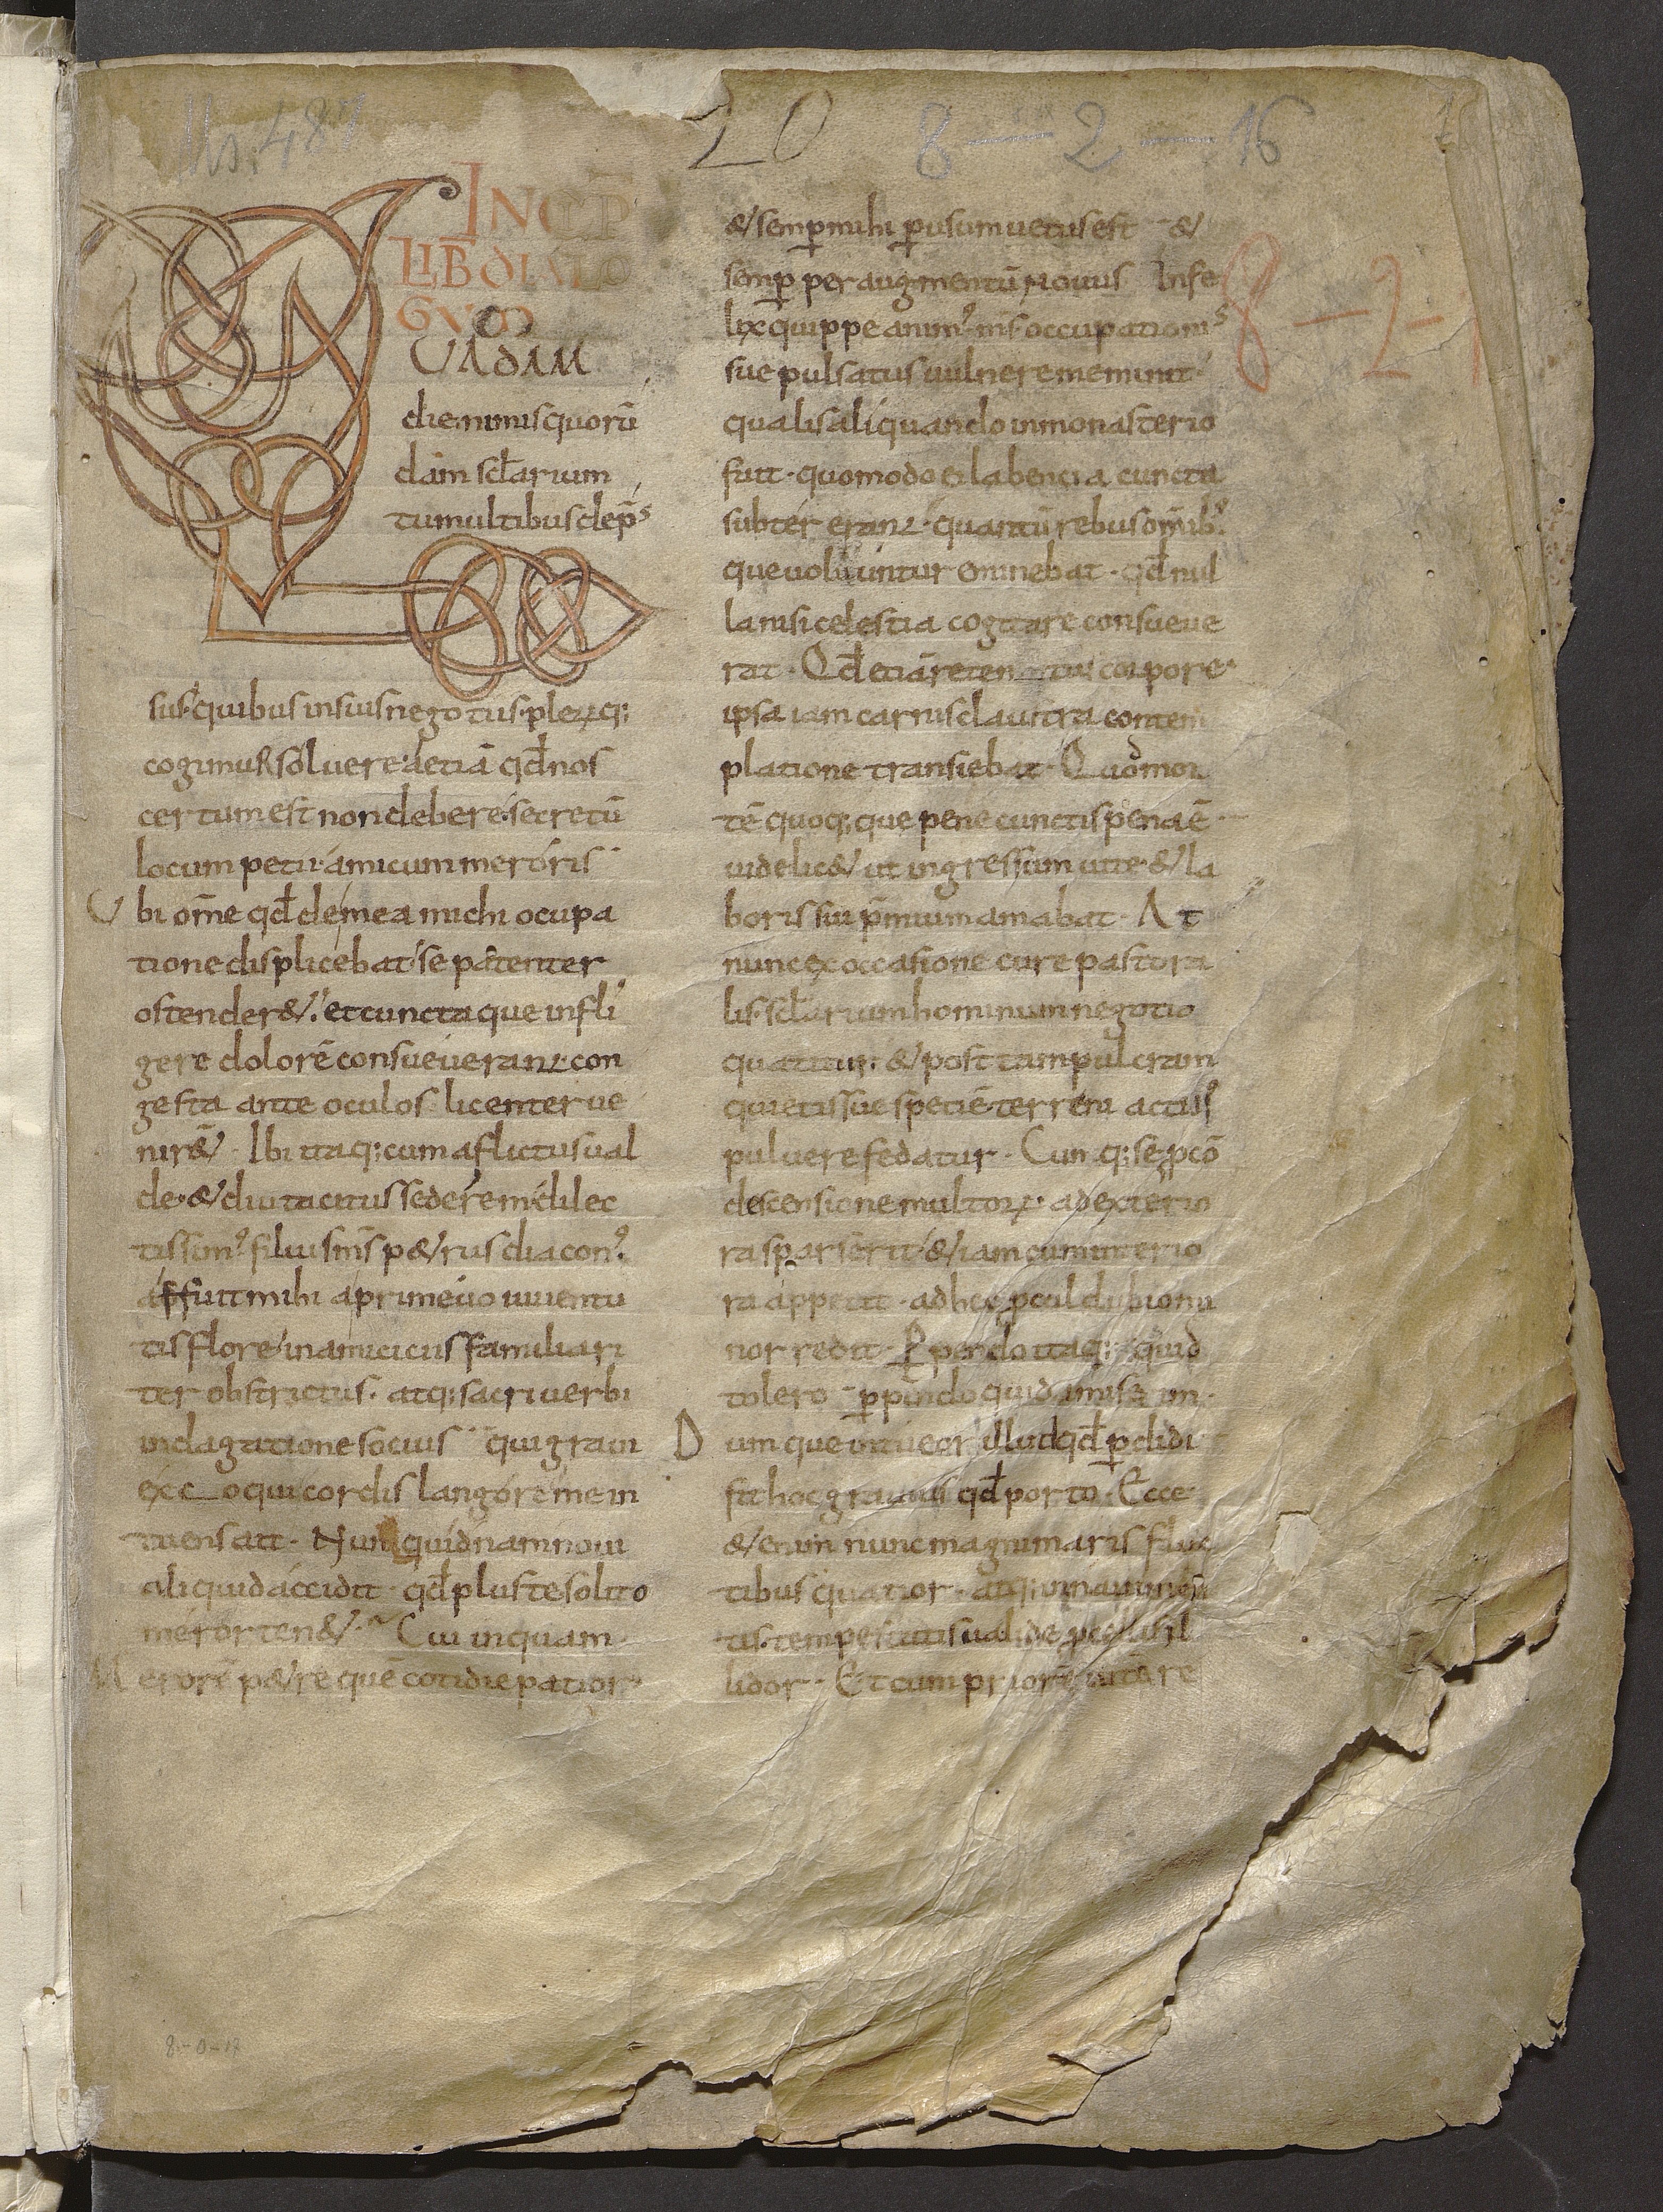 Ms. 487
20 8 — 2 — 16
INCP
LIB DIALO
GVOR
UADAM
die nimis quorū
dam sclarium
tumultibus depˢ
sus quibus in suis negotiis pleꝝq;
cogimur solvere etiā qđ nos
certum est non debere secretū
locum petii amicum meroris
Ubi om̄e qđ de mea michi ocupa
tione displicebat se patenter
ostender& et cuncta que infli
gere dolorē consueverant con
gesta ante oculos licenter ve
nir& . Ibi itaq; cum aflictus val
de & diu tacitus sederem dilec
tissim⁹ filius m̄s p&rus diacon⁹
affuit mihi a primevo iuventu
tis flore in amiciciis familiari
ter obstrictus . atq; sacri verbi
indagatione socius qui gravi
exc_oqui cordis langore me in
tuens ait . Nunquidnam novi
aliquid accidit qđ plus te solito
meror ten& . Cui inquam
Merorē p&re quē cotidie patior
& semp̲ mihi p̲ usum vetus est &
semp̲ per augmentū novus Infe
lix quippe anim⁹ m̄s occupationiˢ
sue pulsatus vulnere meminit
qualis aliquando in monasterio
fuit . quomodo ei labencia cuncta
subter erant . quantū rebus om̄ib⁹
que volvuntur eminebat . qđ nul
la nisi celestia cogitare consueve
rat . Qđ etiā retentus corpore
ipsa iam carnis claustra contem
platione transiebat . Quod mor
tē quoq; que pene cunctis pena ē
videlic& ut ingressum vite & la
boris sui p̄mium amabat . At
nunc ex occasione cure pastora
lis sclarium hominum negotio
quatitur & post tam pulcram
quietis sue speciē terreni act⁹
pulvere fedatur . Cumq; se p̲ cō
descensione multoꝝ ad exterio
ra sparserit & iam cum interio
ra appetit . ad hec p̲cul dubio mi
nor redit . P̲pendo itaq; quid
tolero p̲pendo quid amisi .
Dumque intueor illud qđ p̲didi
fit hoc gravius qđ porto . Ecce
&enim nunc magni maris fluc
tibus quatior . atq; in navi men
tis tempestatis valide p̲cellis il
lidor . Et cum priorē vitā re
8 — 2 - 1
8-0-17